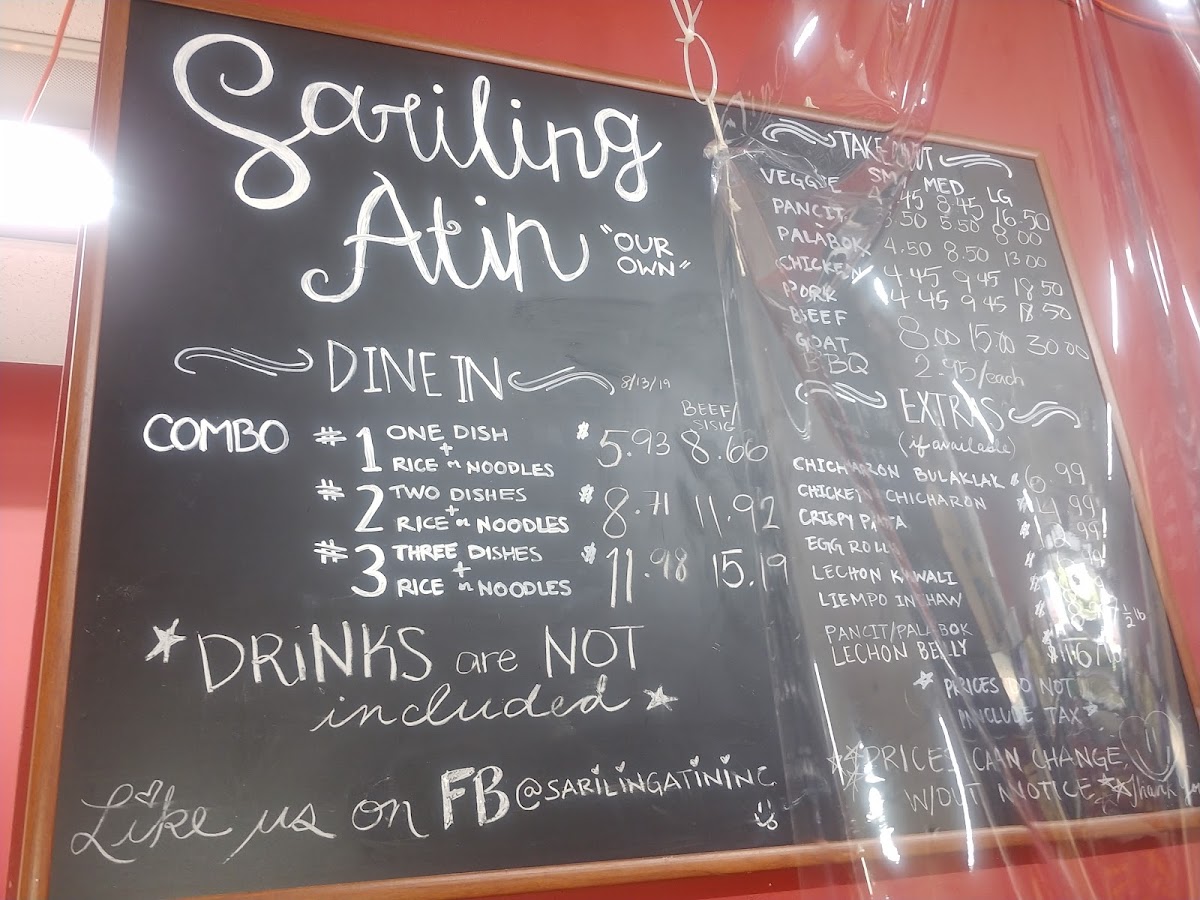 Sariling
Atin "OUR OWN"
DINE IN 8/13/19
BEEF/
SISIG
COMBO #1 ONE DISH + RICE or NOODLES $5.93 8.66
#2 TWO DISHES + RICE or NOODLES $8.71 11.92
#3 THREE DISHES + RICE or NOODLES $11.98 15.19
*DRiNKS are NOT
included*
Like us on FB @SARILINGATININC
TAKE OUT
SM MED LG
VEGGIE 4.45 8.45 16.50
PANCIT 5.50 8.00
PALABOK 4.50 8.50 13.00
CHICKEN 4.45 9.45 18.50
PORK 4.45 9.45 18.50
BEEF
GOAT 8.00 15.00 30.00
BBQ 2.95/each
EXTRAS
(if available)
CHICHARON BULAKLAK $6.99
CHICKEN CHICHARON $4.99
CRISPY PATA
EGG ROLL
LECHON KAWALI
LIEMPO INIHAW
PANCIT/PALABOK
LECHON BELLY
*PRICES DO NOT
INCLUDE TAX*
**PRICES CAN CHANGE
W/OUT NOTICE** Thank you